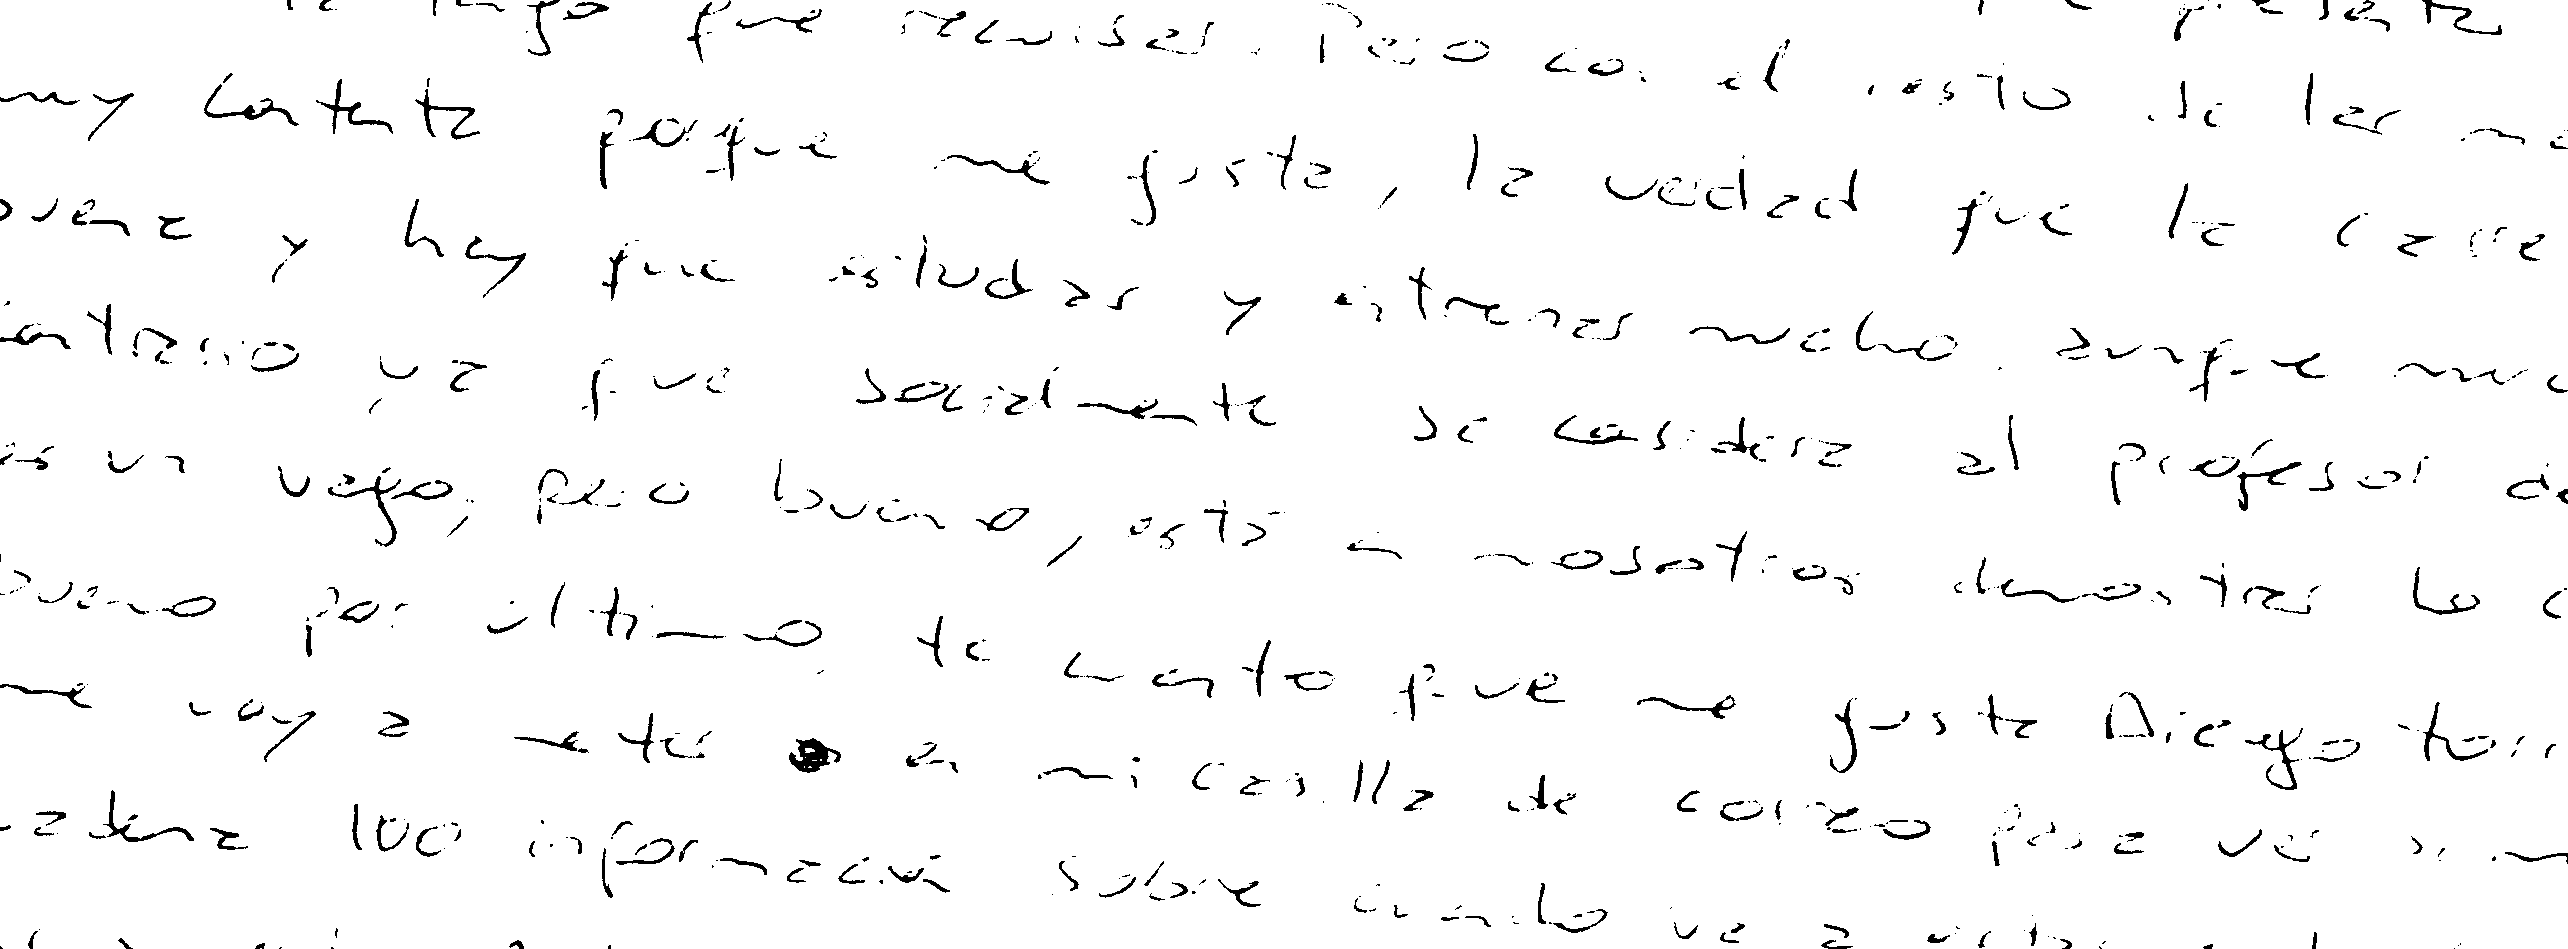 la tengo que recursar. Pero con el resto de las
muy contenta porque me gusta, la verdad que la
buena y hay que estudiar y entrenar mucho, aunque
contrario ya que socialmente se considera al profesor de
es un vago, pero bueno, está en nosotros demostrar lo
bueno por último te cuento que me gusta Diego
me voy a meter en mi casilla de correo para ver si
cadena 100 información sobre cuando va a